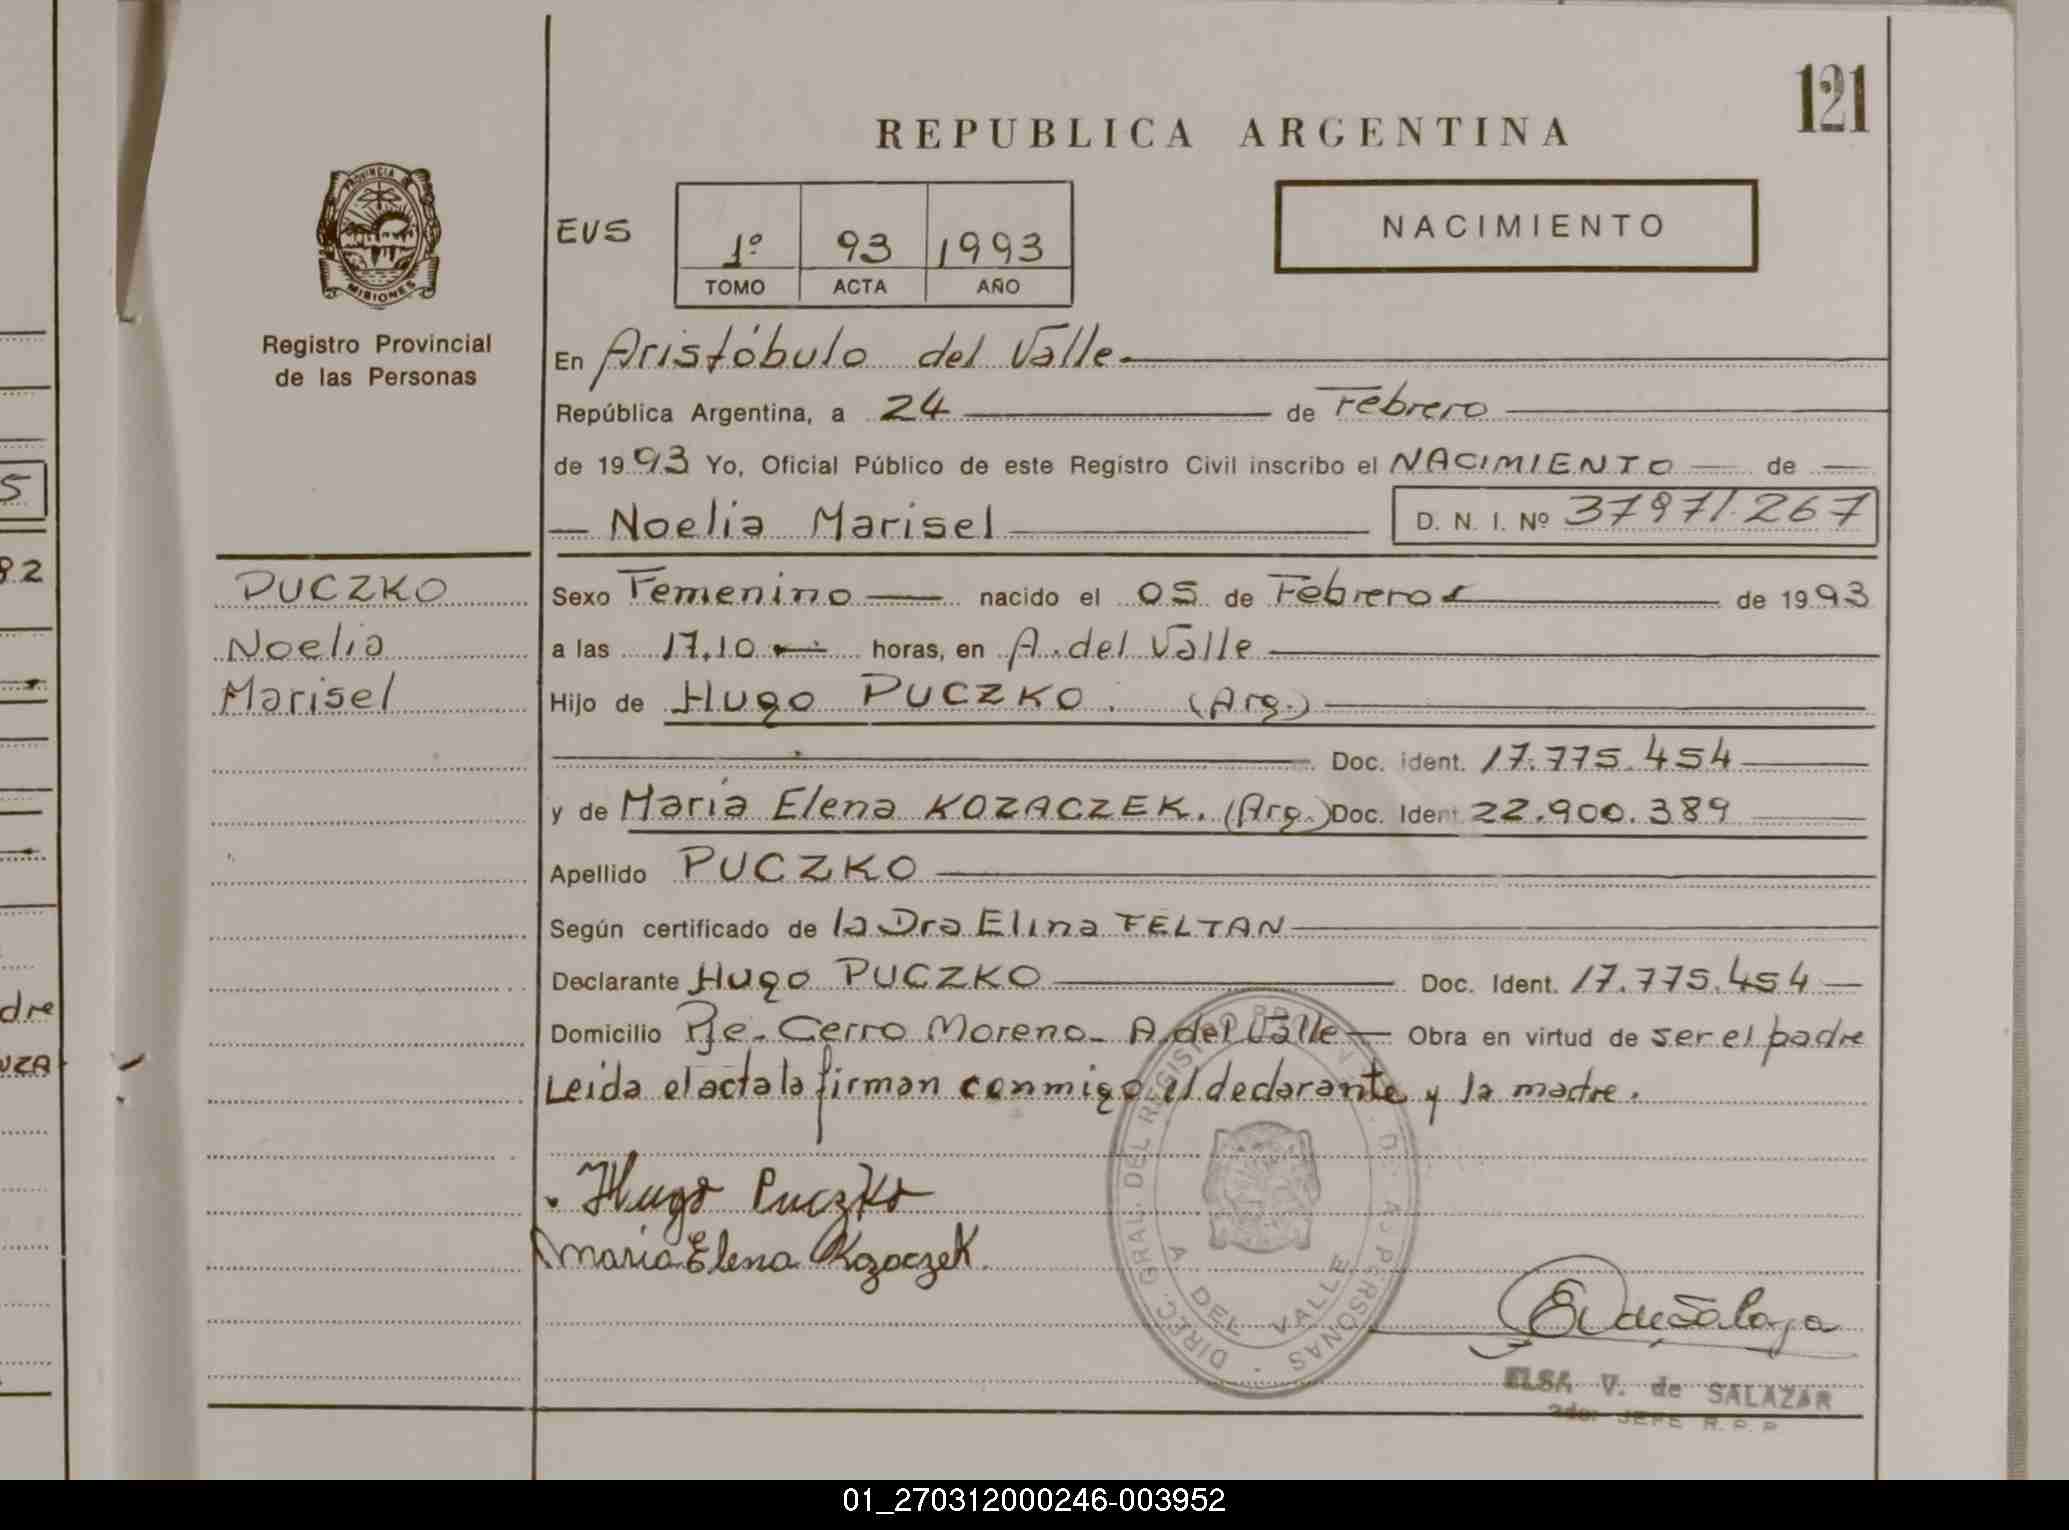 121
REPUBLICA ARGENTINA
PROVINCIA DE
MISIONES
Registro Provincial
de las Personas
EVS
1º 93 1993
TOMO ACTA AÑO
NACIMIENTO
En Aristóbulo del Valle.
República Argentina, a 24 de Febrero
de 1993 Yo, Oficial Público de este Registro Civil inscribo el NACIMIENTO de
Noelia Marisel
D. N. I. Nº 37971.267
PUCZKO
Noelia
Marisel
Sexo Femenino nacido el 05 de Febrero de 1993
a las 17.10 horas, en A. del Valle
Hijo de Hugo PUCZKO. (Arg.)
Doc. ident. 17.775.454
y de María Elena KOZACZEK. (Arg.) Doc. Ident 22.900.389
Apellido PUCZKO
Según certificado de la Dra Elina FELTAN
Declarante Hugo PUCZKO Doc. Ident. 17.775.454
Domicilio Pje. Cerro Moreno - A. del Valle Obra en virtud de ser el padre
Leida el acta la firman conmigo el declarante y la madre.
Hugo Puczko
Maria Elena Kozaczek.
DIREC. GRAL. DEL REGISTRO PROV. D. PERSONAS
A DEL VALLE
EV de Salazar
ELSA V. de SALAZAR
2do. JEFE R. P. P.
5
82
dre
UZA
01_270312000246-003952